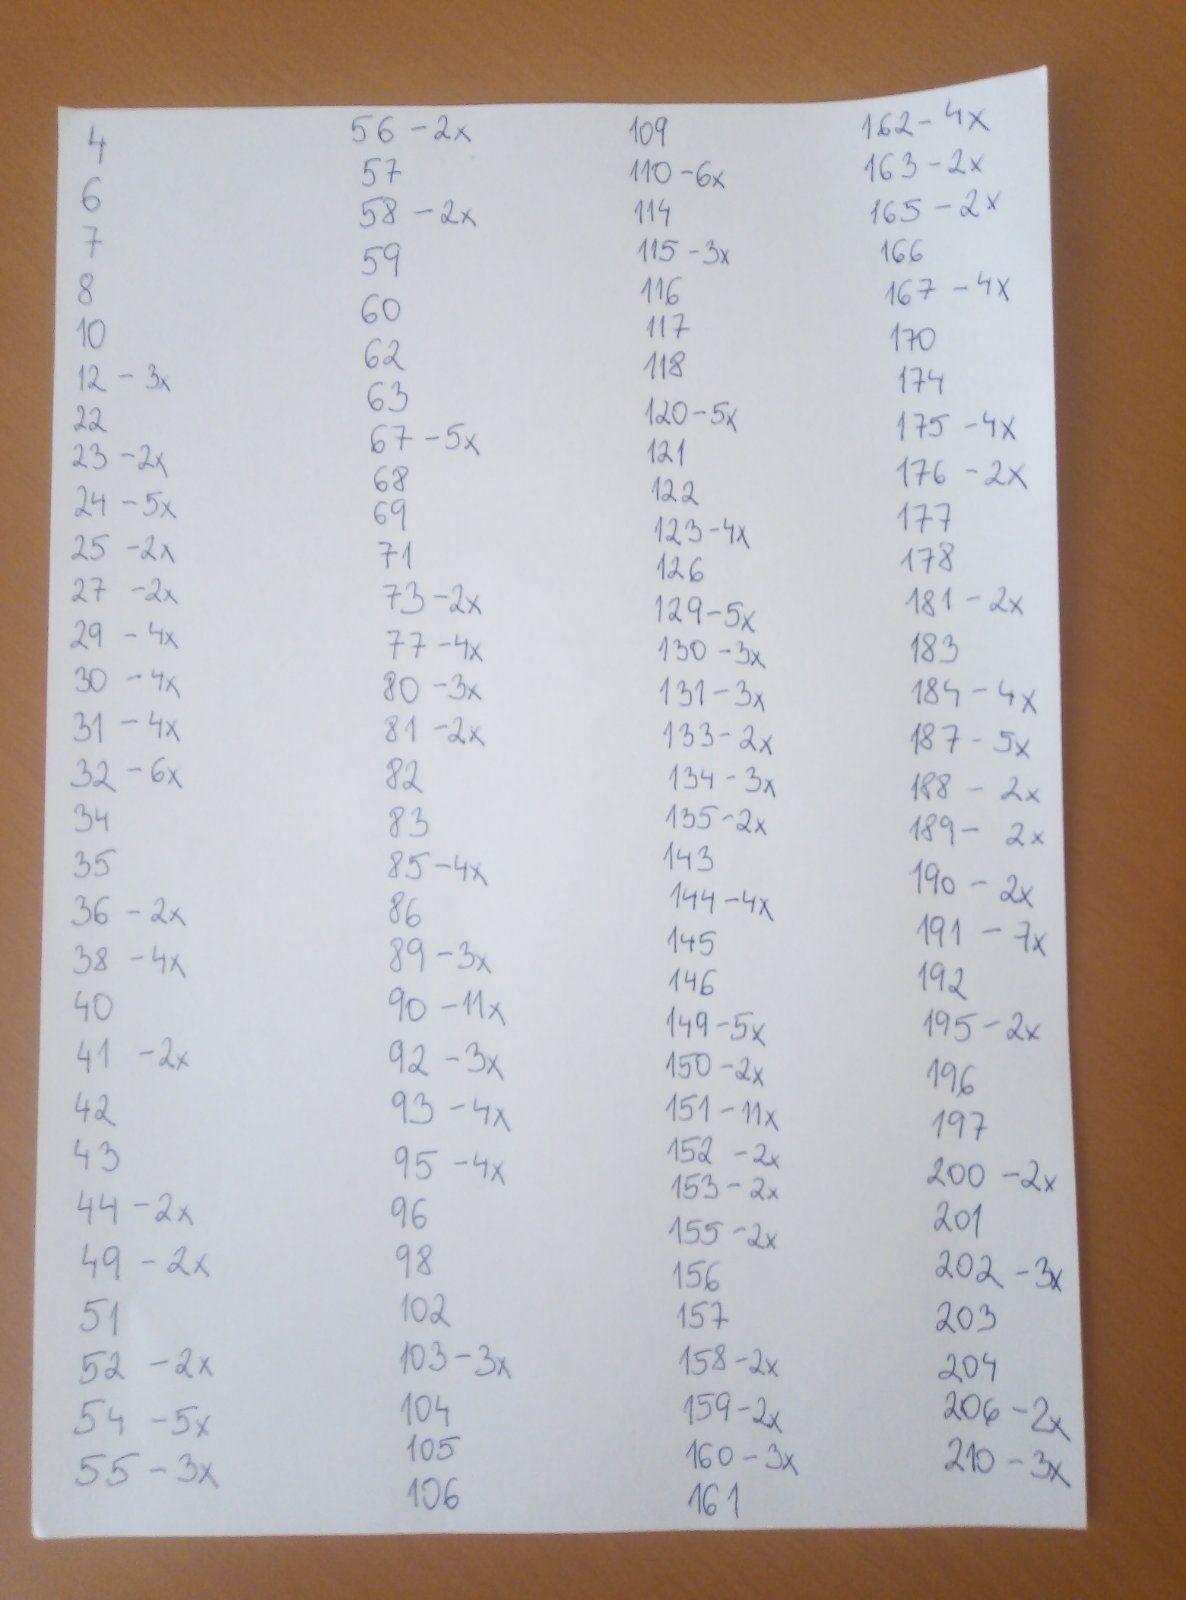 4
6
7
8
10
12 - 3x
22
23 - 2x
24 - 5x
25 - 2x
27 - 2x
29 - 4x
30 - 4x
31 - 4x
32 - 6x
34
35
36 - 2x
38 - 4x
40
41 - 2x
42
43
44 - 2x
49 - 2x
51
52 - 2x
54 - 5x
55 - 3x
56 - 2x
57
58 - 2x
59
60
62
63
67 - 5x
68
69
71
73 - 2x
77 - 4x
80 - 3x
81 - 2x
82
83
85 - 4x
86
89 - 3x
90 - 11x
92 - 3x
93 - 4x
95 - 4x
96
98
102
103 - 3x
104
105
106
109
110 - 6x
114
115 - 3x
116
117
118
120 - 5x
121
122
123 - 4x
126
129 - 5x
130 - 3x
131 - 3x
133 - 2x
134 - 3x
135 - 2x
143
144 - 4x
145
146
149 - 5x
150 - 2x
151 - 11x
152 - 2x
153 - 2x
155 - 2x
156
157
158 - 2x
159 - 2x
160 - 3x
161
162 - 4x
163 - 2x
165 - 2x
166
167 - 4x
170
174
175 - 4x
176 - 2x
177
178
181 - 2x
183
184 - 4x
187 - 5x
188 - 2x
189 - 2x
190 - 2x
191 - 7x
192
195 - 2x
196
197
200 - 2x
201
202 - 3x
203
204
206 - 2x
210 - 3x